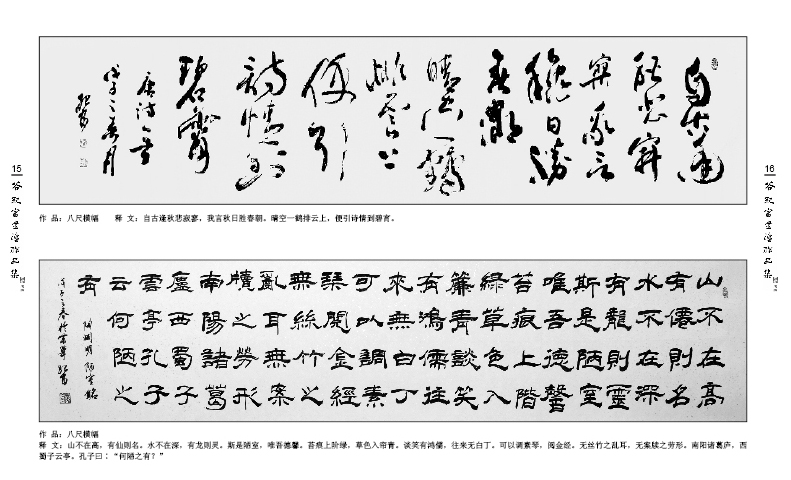 自古逢
秋悲寂
寥我言
秋日勝
春潮
晴空一鶴
排雲上
便引
詩情到
碧霄
唐诗一首
戊子之春月
15
16
作 品：八尺横幅 释 文：自古逢秋悲寂寥，我言秋日胜春朝。晴空一鹤排云上，便引诗情到碧宵。
山不在高
有僊則名
水不在深
有龍則靈
斯是陋室
唯吾德馨
苔痕上階
綠草色入
簾青談笑
有鴻儒往
來無白丁
可以調素
琴閱金經
無絲竹之
亂耳無案
牘之勞形
南陽諸葛
廬西蜀子
雲亭孔子
云何陋之
有
陋室銘
戊子之春
作 品：八尺横幅
释 文：山不在高，有仙则名。水不在深，有龙则灵。斯是陋室，唯吾德馨。苔痕上阶绿，草色入帘青。谈笑有鸿儒，往来无白丁。可以调素琴，阅金经。无丝竹之乱耳，无案牍之劳形。南阳诸葛庐，西
蜀子云亭。孔子曰：“何陋之有？”